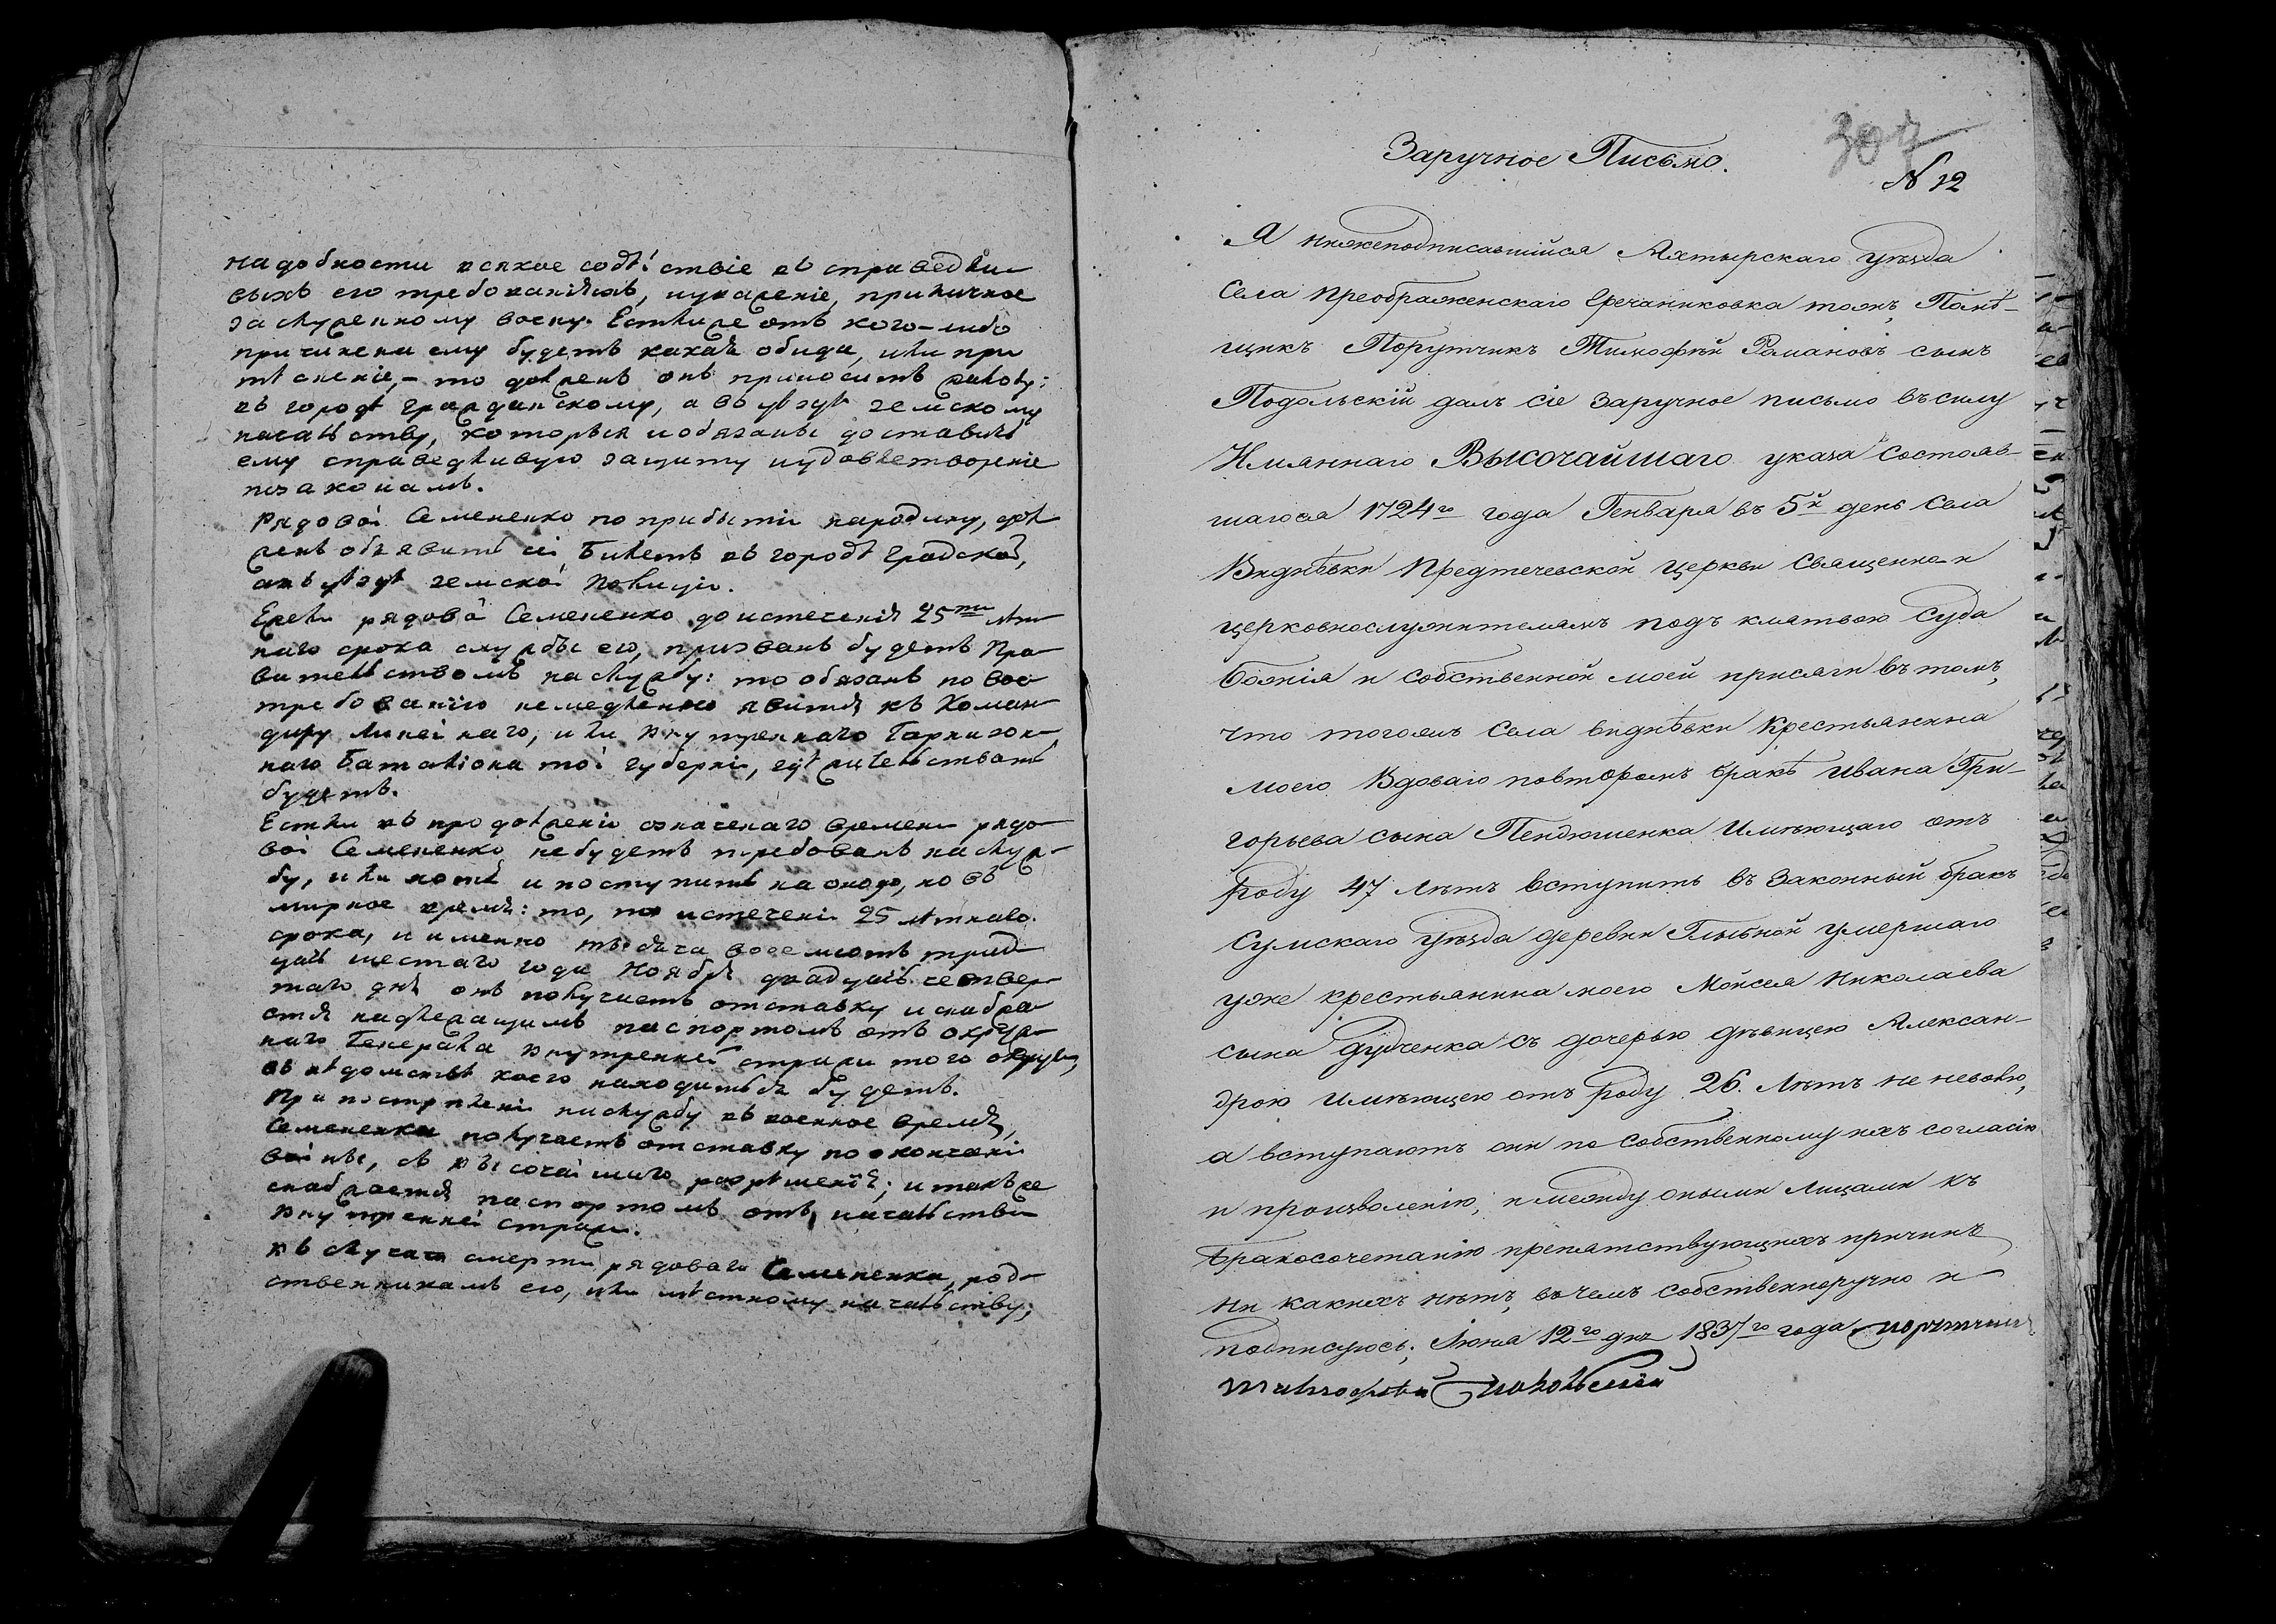 надобности всякое содѣйствіе въ справедли-
выхъ его требованіяхъ, иуваженіе, приличное
заслуженному воену. Естлиже отъ кого-либо
причинена ему будетъ какая обида, или при
тѣсненіе,- то долженъ онъ приносить жалобу:
въ городѣ гражданскому, а въ уѣздѣ земскому
начальству, которыя иобязаны доставить
ему справедливую защиту иудовлетвореніе
позаконамъ.
Рядовой Семененко поприбытіи народину, дол
женъ объявить сей Билетъ въ городѣ градской,
авъ уѣздѣ земской Полиціи.
Ежели рядовой Семененко доистеченія 25ти лѣт
наго срока службы его, призванъ будетъ Пра
вительствомъ наслужбу: то обязанъ по вос
требованію немедленно явится къ Коман
диру Линейнаго, или внутренняго Гарнизон
наго Баталіона той губерніи, гдѣ жительствовать
будетъ.
Естли въ продолженіи означенаго времени рядо
вой Семененко небудетъ требованъ наслуж
бу, или хотя и поступитъ на оною, но въ
мирное время: то, по истеченіи 25 лѣтнаго
срока, и именно тысяча восемьсотъ трид
цать шестаго года Ноября двадцать четвер
таго дня онъ получаетъ отставку и снабжа
стя надлежащимъ паспортомъ отъ окруж
наго Генерала внутренней стражи того округа,
въ вѣдомствѣ коего находиться будетъ.
При поступленіи наслужбу въ военное время,
Семененко получаетъ отставку по окончаніи
войны, съ высочайшаго разрѣшенія; и также
снабжается паспортомъ отъ начальства
внутренней стражи.
въ случае смерти рядоваго Семененка, род
ственникамъ его, или мѣстному начальству,
307
Заручное Письмо.
N 12
Я нижеподписавшійся Ахтырскаго уѣзда
Села Преображенскаго Гречаниковка тожъ, Помѣ-
щикъ Порутчикъ Тимофѣй Романовъ сынъ
Подольскій далъ сіе заручное письмо въсилу
Имяннаго Высочайшаго указа состояв-
шагося 1724го года Генваря въ 5й день Села
Виднѣвки Предтечевской церкви Священно-и
церковнослужителямъ подъ клятвою Суда
божія и собственной моей присяги въ томъ,
что тогожъ Села виднѣвки Крестьянина
моего Вдоваго повторомъ бракѣ ивана Гри-
горьева сына Пендюшенка Имѣющаго отъ
роду 47 лѣтъ вступить въ Законный бракъ
Сумскаго уѣзда деревни Глыбной умершаго
уже крестьянина моего Моисея Николаева
сына Дудченка съ дочерью дѣвицею Алексан-
дрою имѣющею отъ роду 26. лѣтъ не неволю,
а вступаютъ они по собственному ихъ согласію
и произволенію; и между оными лицами къ
бракосочетанію препятствующихъ причинъ
ни какихъ нѣтъ, въ чемъ собственноручно и
подписуюсь; Іюня 12го дня 1837го года порутчикъ
Тимофѣй Подольскій